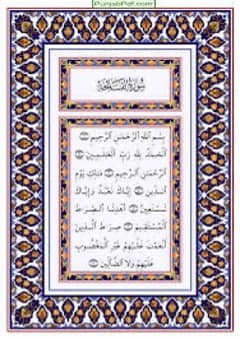 PunjabiPdf.com
سُورَةُ الْفَاتِحَةِ
بِسْمِ اللَّهِ الرَّحْمَٰنِ الرَّحِيمِ
الْحَمْدُ لِلَّهِ رَبِّ الْعَالَمِينَ
الرَّحْمَٰنِ الرَّحِيمِ مَالِكِ يَوْمِ
الدِّينِ إِيَّاكَ نَعْبُدُ وَإِيَّاكَ
نَسْتَعِينُ اهْدِنَا الصِّرَاطَ
الْمُسْتَقِيمَ صِرَاطَ الَّذِينَ
أَنْعَمْتَ عَلَيْهِمْ غَيْرِ الْمَغْضُوبِ
عَلَيْهِمْ وَلَا الضَّالِّينَ